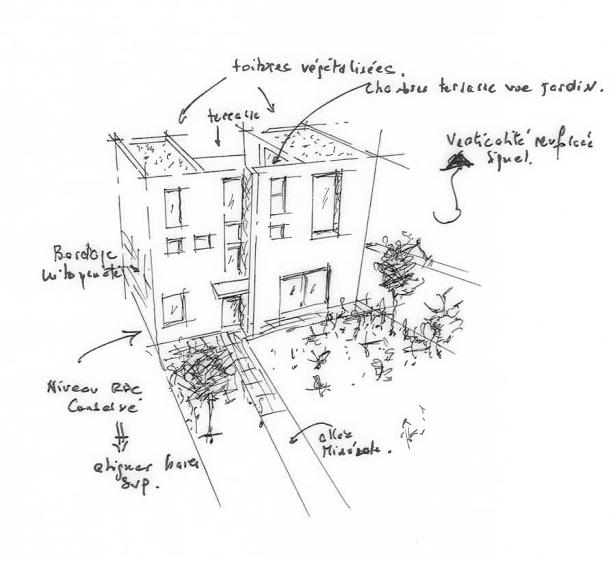 toitures végétalisées.
Chambres terrasse vue jardin.
terrasse
Verticalité renforcée
Bardage
mitoyenneté
Niveau RDC
Conservé
aligner baies
svp.
allée
Minérale.